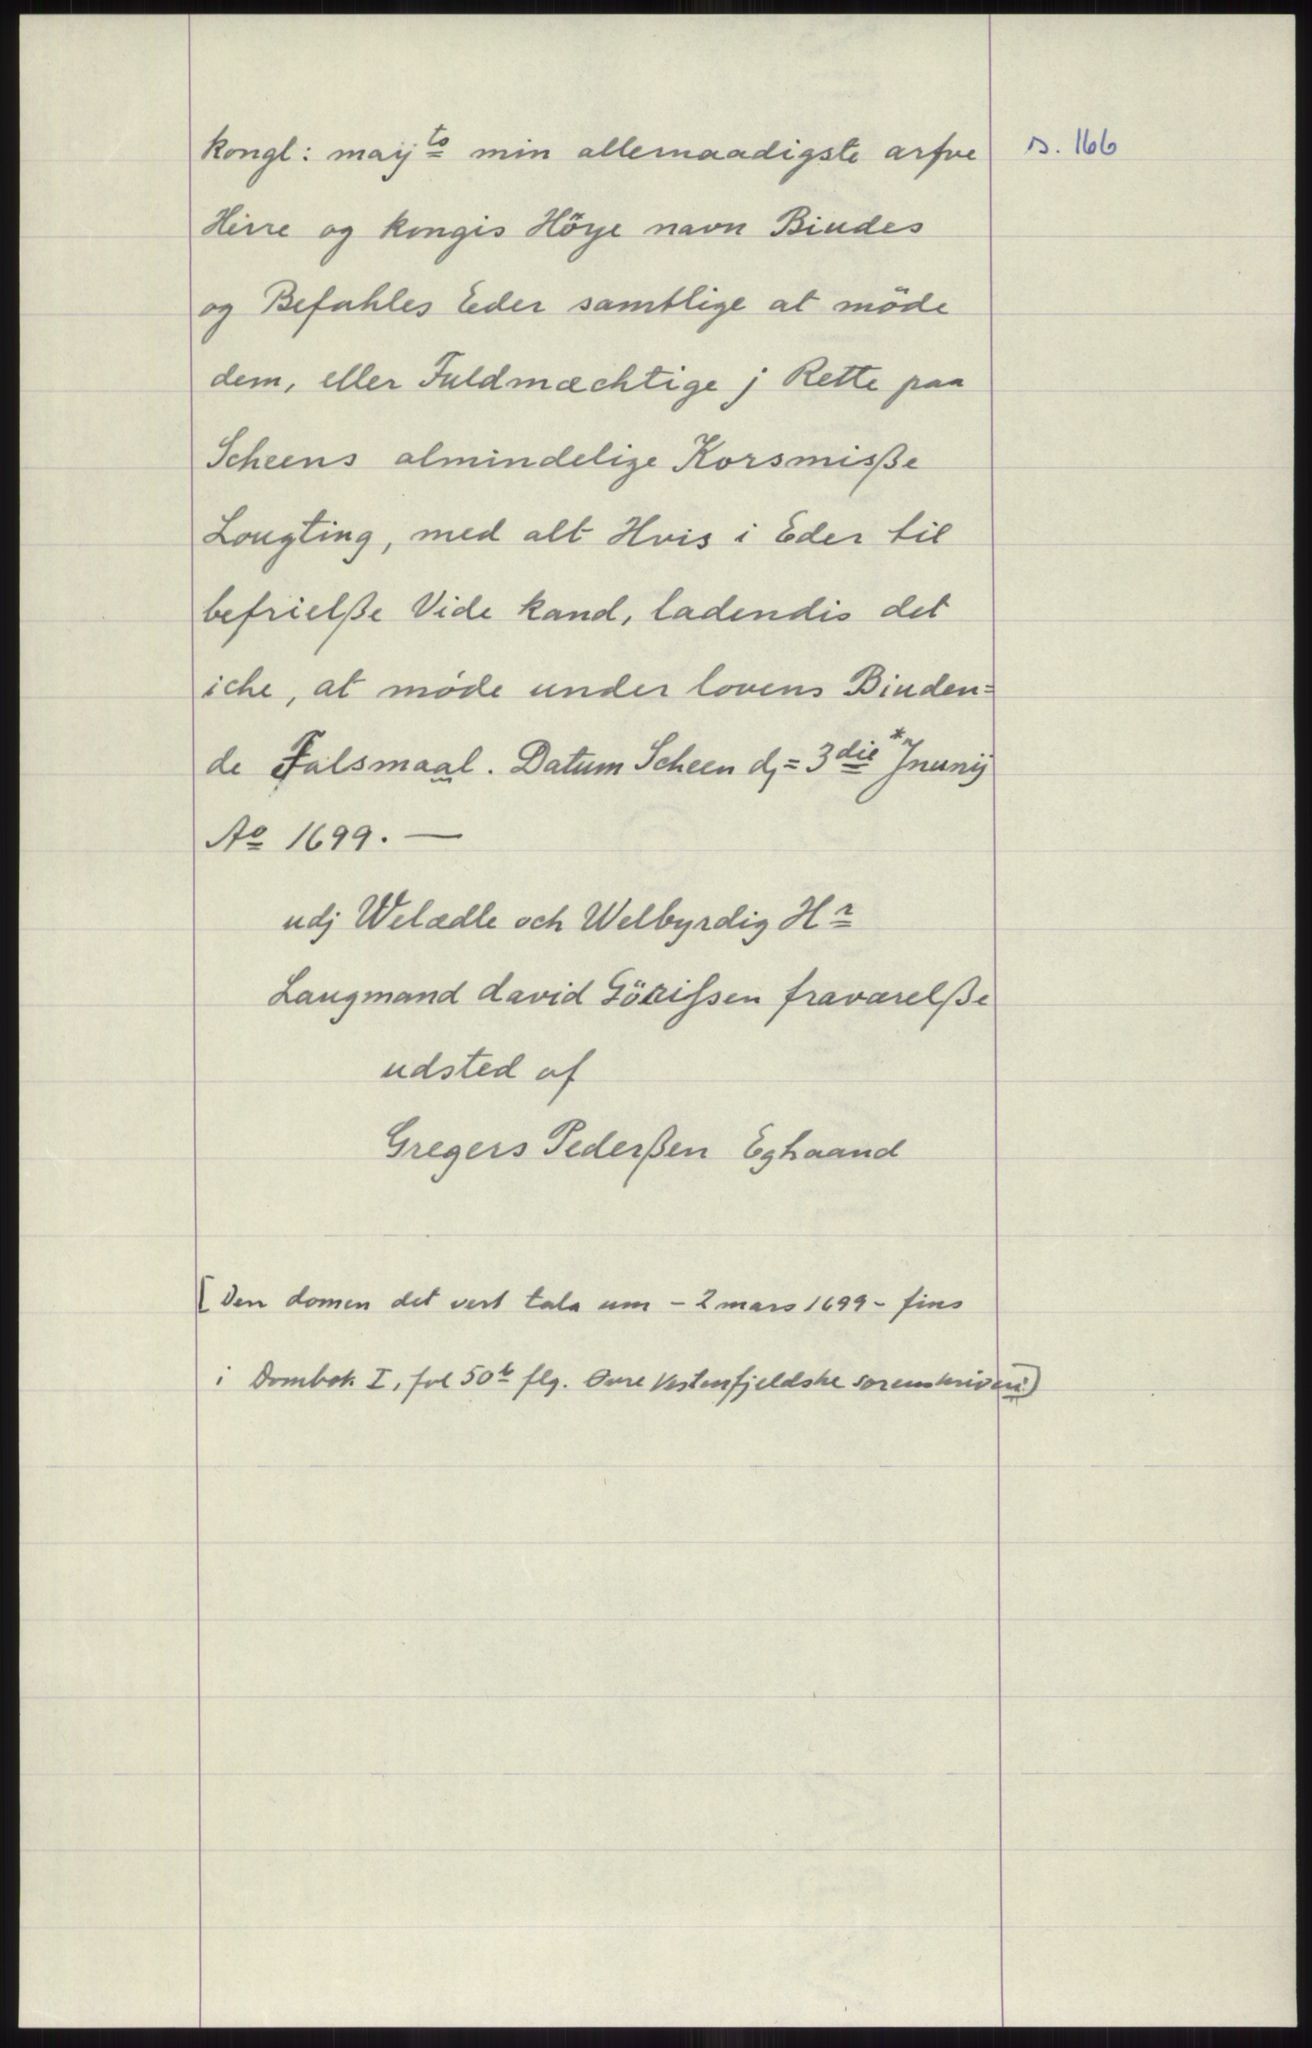 kongl: maij<sup>ts</sup> min allernaadigste arfve s. 166
Herre og kongis Höye navn Biudes
og Befahles Eder samtlige at möde
dem, eller Fuldmæchtige j Rette paa
Scheens almindelige Korsmisße
Lougting, med alt Hvis i Eder til
befrielße Vide kand, ladendis det
iche, at möde under lovens Biuden=
de Falsmaal. Datum Scheen dj= 3die *Jnunij
Ao 1699. —
udj Welædle och Welbyrdig Hr
Laugmand david Görissen fraværelße
udsted af
Gregers Pederßen Eghaand
[Den domen det vert tala um - 2 mars 1699 - fins
i Dombok I, fol 50b flg. Øvre Vestenfjeldske sorenskriveri)